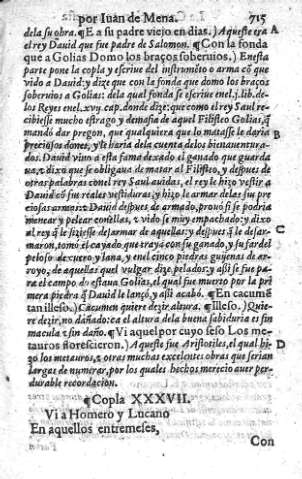 por Iuan de Mena. 715
dela su obra. ¶E a su padre viejo en dias.) Aqueste era A
el rey Dauid que fue padre de Salomon. ¶Con la fonda
que a Golias Domo los braços soberuios.) Enesta
parte pone la copla y escriue del instrumẽto o arma cõ que
vido a Dauid: y dize que con la fonda que domo los braços
soberuios a Golias: dela qual fonda se escriue enel .j. lib. de-
los Reyes enel .xvij. cap. donde dize: que como el rey Saul re-
cibiesse mucho estrago y demasia de aquel Filisteo Golias, q̃
mandó dar pregon, que qualquiera que lo matasse le daria B
preciosos dones, y le haria dela cuenta delos bienauentura-
dos. Dauid vino a esta fama dexado el ganado que guarda
ua, ⁊ dixo que se obligaua de matar al Filisteo, y despues de
otras palabras conel rey Saul auidas, el rey le hizo vestir a
Dauid cõ sus reales vestiduras: y hizo le armar delas su pre
ciosas armas: ⁊ Dauid despues de armado, prouó si se podria
menear y pelear conellas, ⁊ vido se muy empachado: y dixo
al rey q̃ le fiziesse desarmar de aquellas: y despues q̃ le desar- C
maron, tomó el cayado que trayá con su ganado, y su fardel
peloso de cuero y lana, y enel cinco piedras guijenas de ar-
royo, de aquellas quel vulgar dize pelados: y assi se fue pa-
ra el campo do estaua Golias, el qual fue muerto por la pri
mera piedra q̃ Dauid le lançó, y assi acabó. ¶En cacumẽ
tan illeso.) Cacumen quiere dezir altura. ¶Illeso.) Quie-
re dezir, no dañado: ca el altura dela buena sabiduria es sin
macula ⁊ sin daño. ¶Vi aquel por cuyo seso Los me-
tauros florescieron.) Aqueste fue Aristotiles, el qual hi- D
zo los metauros, ⁊ otras muchas excelentes obras que serian
largas de numerar, por los quales hechos merecio auer per-
durable recordacion.
¶Copla XXXVII.
Vi a Homero y Lucano
En aquellos entremeses,
Con